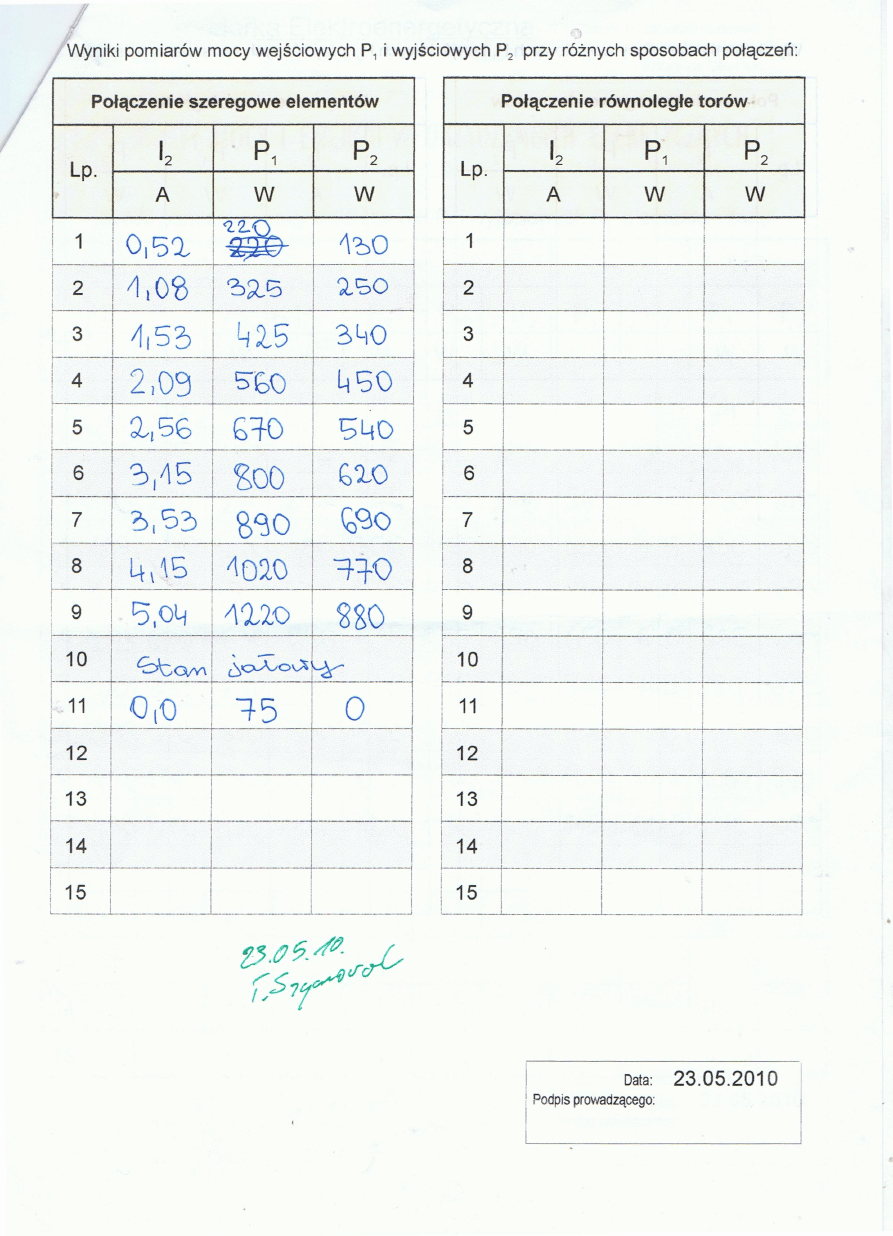 Wyniki pomiarów mocy wejściowych P1 i wyjściowych P2 przy różnych sposobach połączeń:
Połączenie szeregowe elementów
Lp. I2 P1 P2
A W W
1 0,52 220 130
2 1,08 325 250
3 1,53 425 340
4 2,09 560 450
5 2,56 670 540
6 3,15 800 620
7 3,53 890 690
8 4,15 1020 770
9 5,04 1220 880
10 Stan jałowy
11 0,0 75 0
12
13
14
15
Połączenie równoległe torów
Lp. I2 P1 P2
A W W
1
2
3
4
5
6
7
8
9
10
11
12
13
14
15
23.05.10.
Data: 23.05.2010
Podpis prowadzącego: